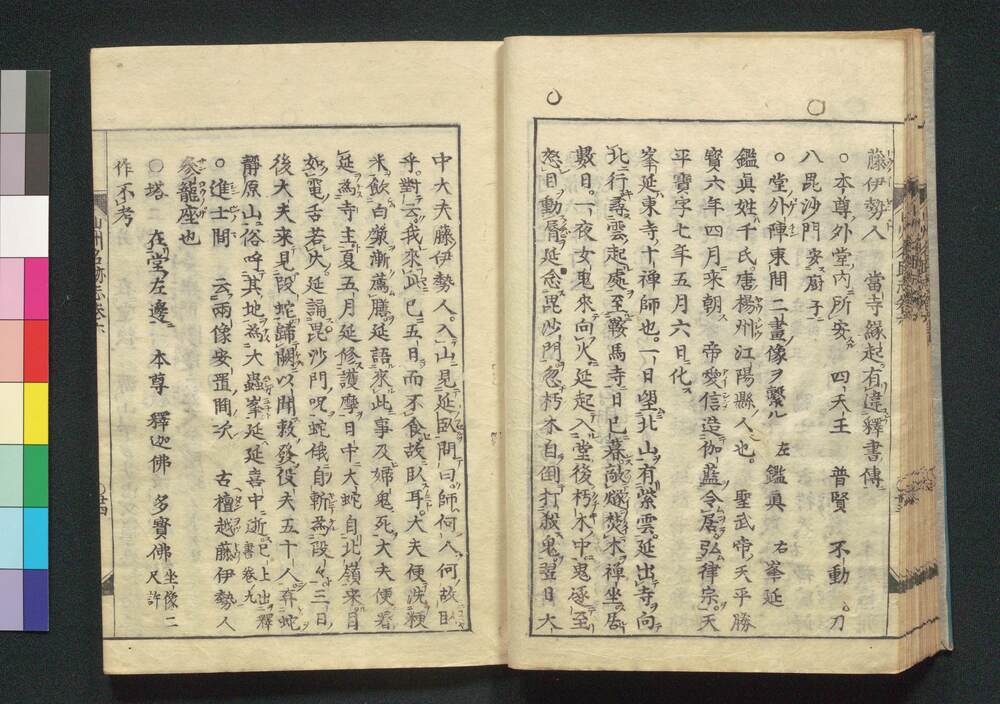 藤伊勢人 當寺縁起有違釋書傳
○本尊外堂內所安 四天王 普賢 不動 刀
八毘沙門 安厨子
○堂外陣東間二畫像ヲ繋ル 左鑑眞 右峯延
鑑眞姓千氏唐楊州江陽縣人也 聖武帝天平勝
寶六年四月来朝 帝愛信造伽藍令居弘律宗天
平寶字七年五月六日化ス
峯延東寺十禅師也一日望北山有紫雲延出寺向
北行尋雲起處至鞍馬寺日已暮敲燧焚木禅坐居
數日一夜女鬼来向火延起入堂後朽木中鬼逐至
怒目動脣延念毘沙門忽朽木自倒打殺鬼翌日大
中大夫藤伊勢人入山見延臥問曰師何人何故臥
乎對云我來此已五日而不食故臥耳大夫便洗粳
米飲白漿漸薦膳延語來此事及婦鬼死大夫便着
延為寺主夏五月延修護摩日中大蛇自北嶺来目
如電舌若火延誦毘沙門呪蛇俄自斬為段々三日
後大夫来見段蛇歸闕以聞敕發役夫五十人弃蛇
靜原山俗呼其地為大蟲峯延延喜中逝已上出釋書卷九
○進士間 云兩像安置間次 古檀越藤伊勢人
參籠座也
○塔 在堂左邊 本尊 釋迦佛 多寶佛坐像二尺許
作不考
山州名跡志卷六